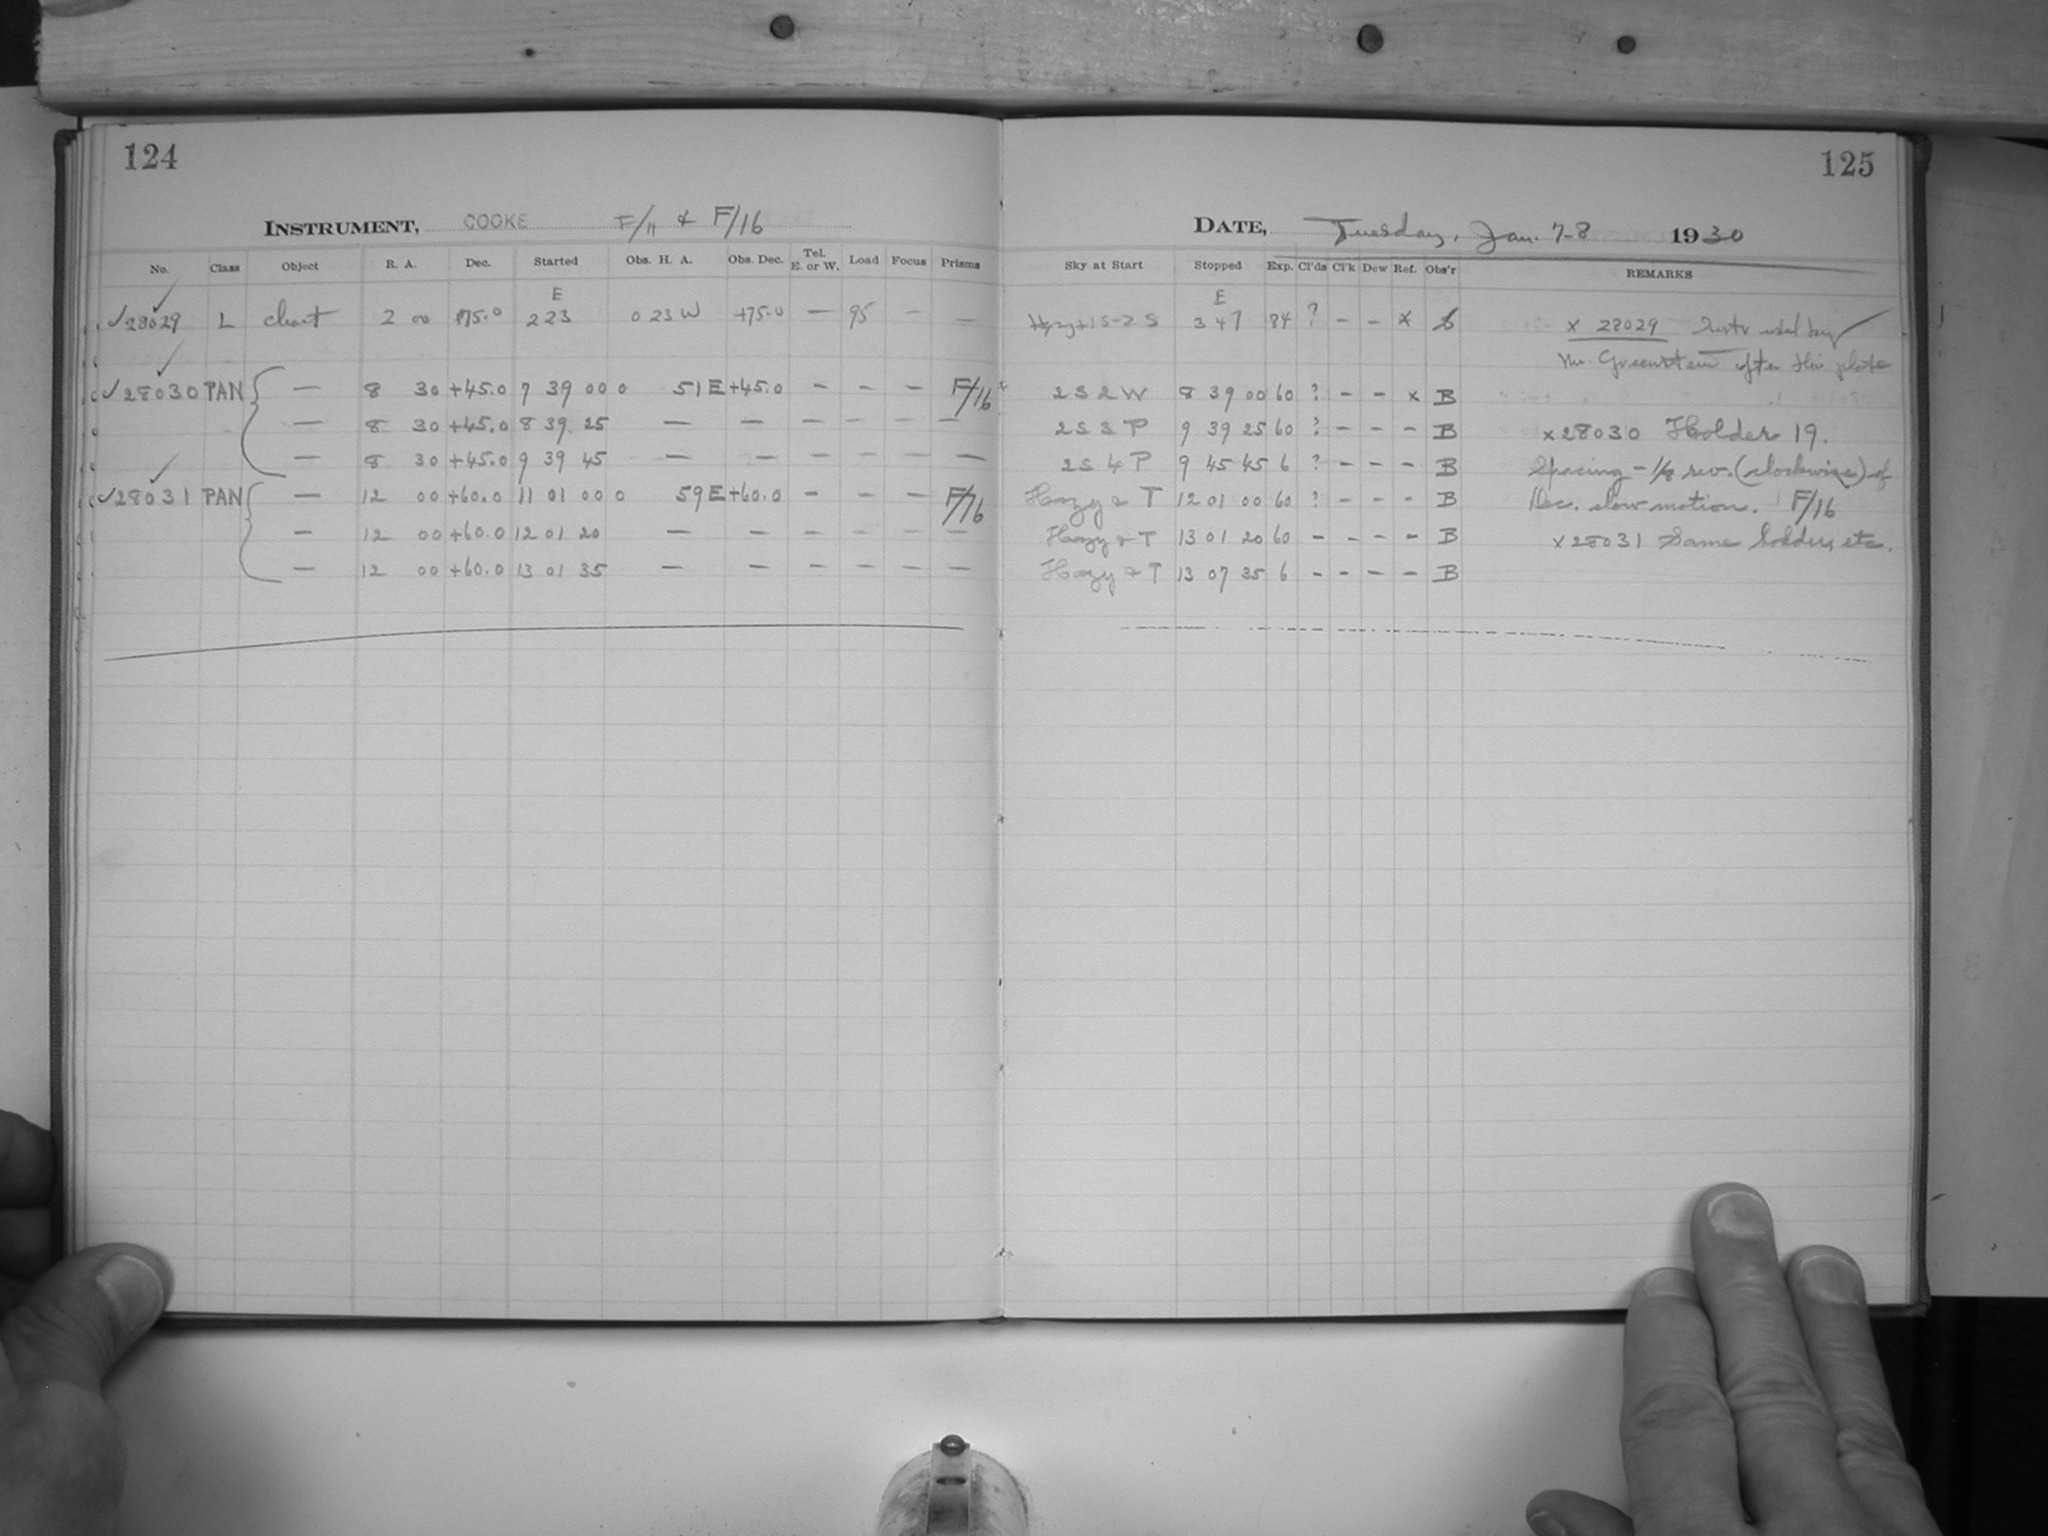 124
INSTRUMENT, COOKE F/11 & F/16
No. Class Object R. A. Dec. Started Obs. H. A. Obs. Dec. Tel. E. or W. Load Focus Prisms
E
✓28029 L chart 2 00 +75.0 2 23 0 23 W +75.0 — 95 — —
✓28030 PAN — 8 30 +45.0 7 39 00 0 51 E +45.0 – – – F/16
— 8 30 +45.0 8 39 25 — — — — — —
— 8 30 +45.0 9 39 45 — — — — — —
✓28031 PAN — 12 00 +60.0 11 01 00 0 59 E +60.0 – – – F/16
— 12 00 +60.0 12 01 20 — — — — — —
— 12 00 +60.0 13 01 35 — — — — — —
125
DATE, Tuesday, Jan. 7-8 1930
Sky at Start Stopped Exp. Cl'ds Cl'k Dew Ref. Obs'r REMARKS
E
Hazy 1S-2S 3 47 84 ? – – x x 28029 used by
Mr. Greenstein after this plate
2S 2W 8 39 00 60 ? – – x B
2S 3P 9 39 25 60 ? – – – B x28030 Holder 19.
2S 4P 9 45 45 6 ? – – – B Spacing – 1/8 rev. (clockwise) of
Hazy & T 12 01 00 60 ? – – B Dec. slow motion. F/16
Hazy & T 13 01 20 60 – – – – B x28031 Same holder, etc.
Hazy & T 13 07 35 6 – – – – B